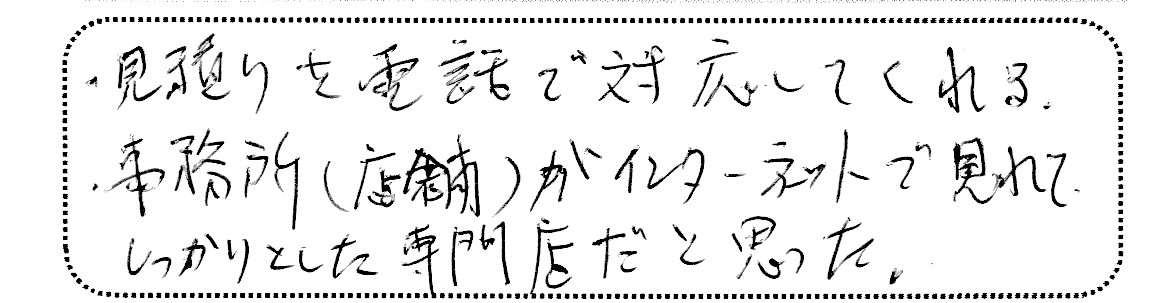 ・見積りを電話で対応してくれる.
・事務所(店舗)がインターネットで見れて
しっかりとした専門店だと思った。